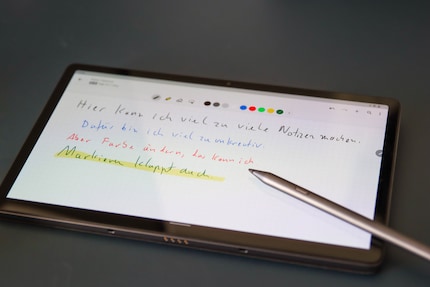 Hier kann ich viel zu viele Notizen machen.
Dafür bin ich viel zu unkreativ
Aber Farbe ändern, das kann ich
Markieren klappt auch